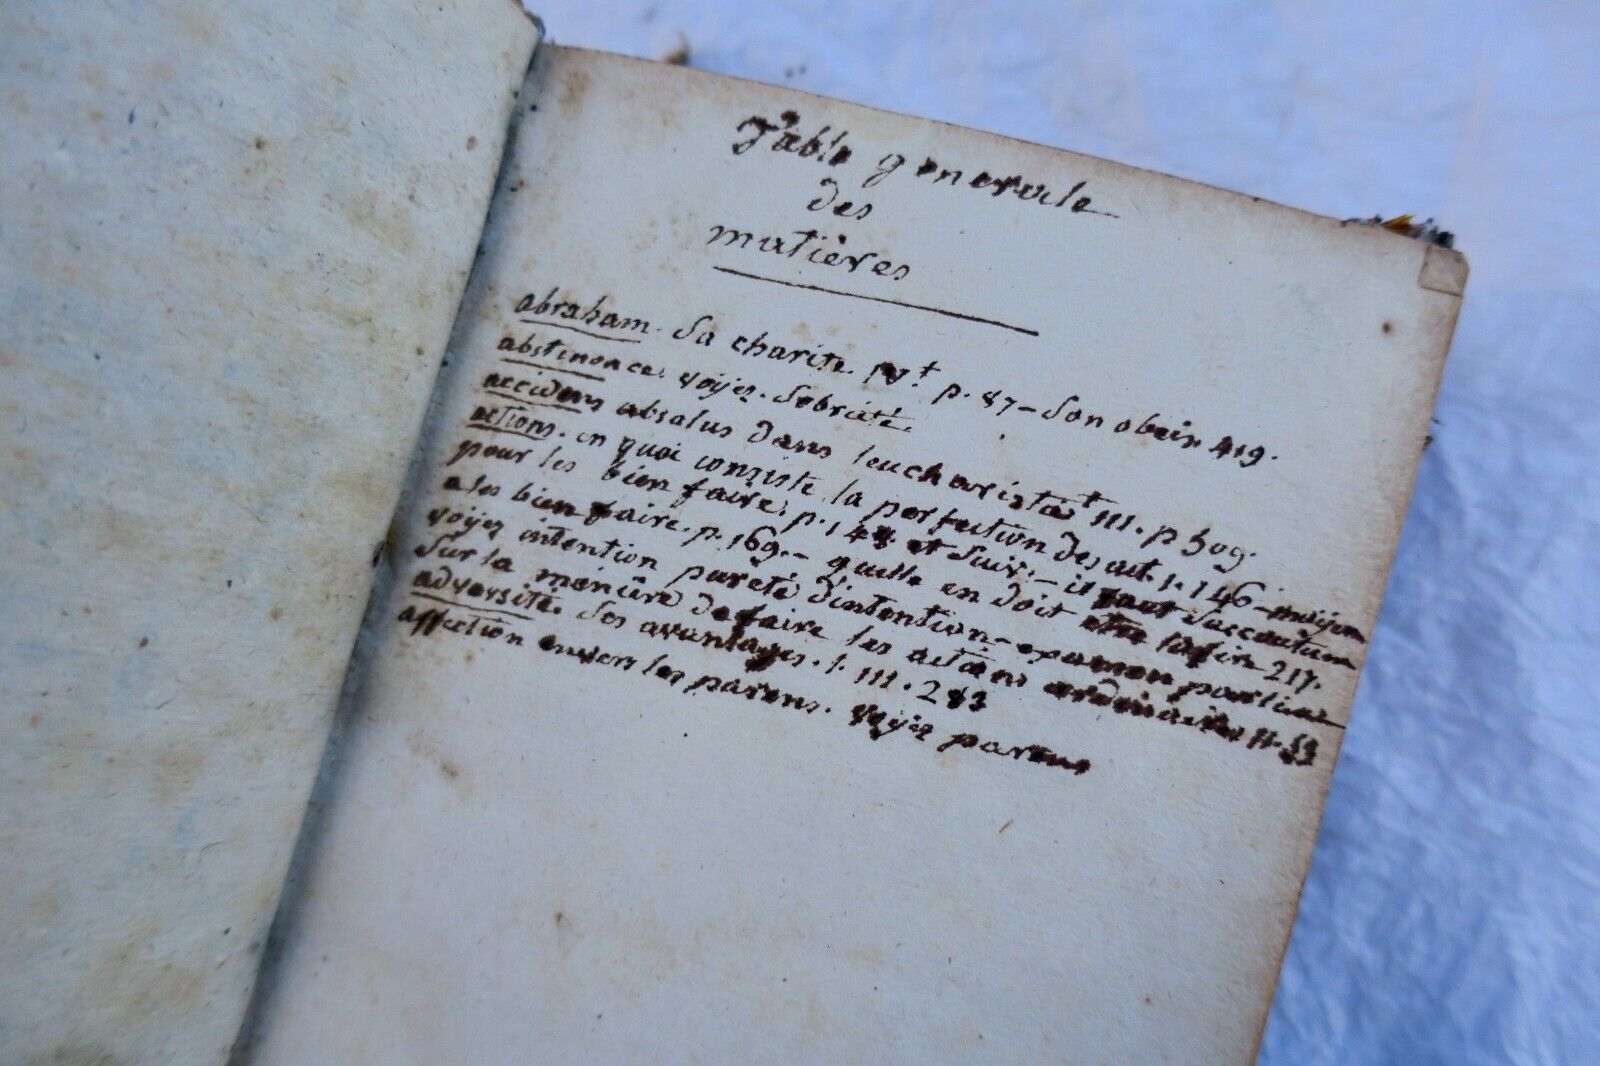 Table generale
des
matières
abraham. Sa charite. IV. t p. 87 - Son obeis. 419.
abstinence. voyez. Sobriété.
accidens absolus dans leucharistie t III. p 509.
actions. en quoi consiste la perfection des act. 1. 146 - moijen
pour les bien faire. p. 148 et suiv. - il faut saccoutum
a les bien faire. p. 169. - quelle en doit etre la fin 217.
voyez intention pureté d'intention - examen particu
Sur la manière de faire les actions ordinaires II. 53
adversité. Ses avantages. t. III. 283
affection envers les parens. voyez parens